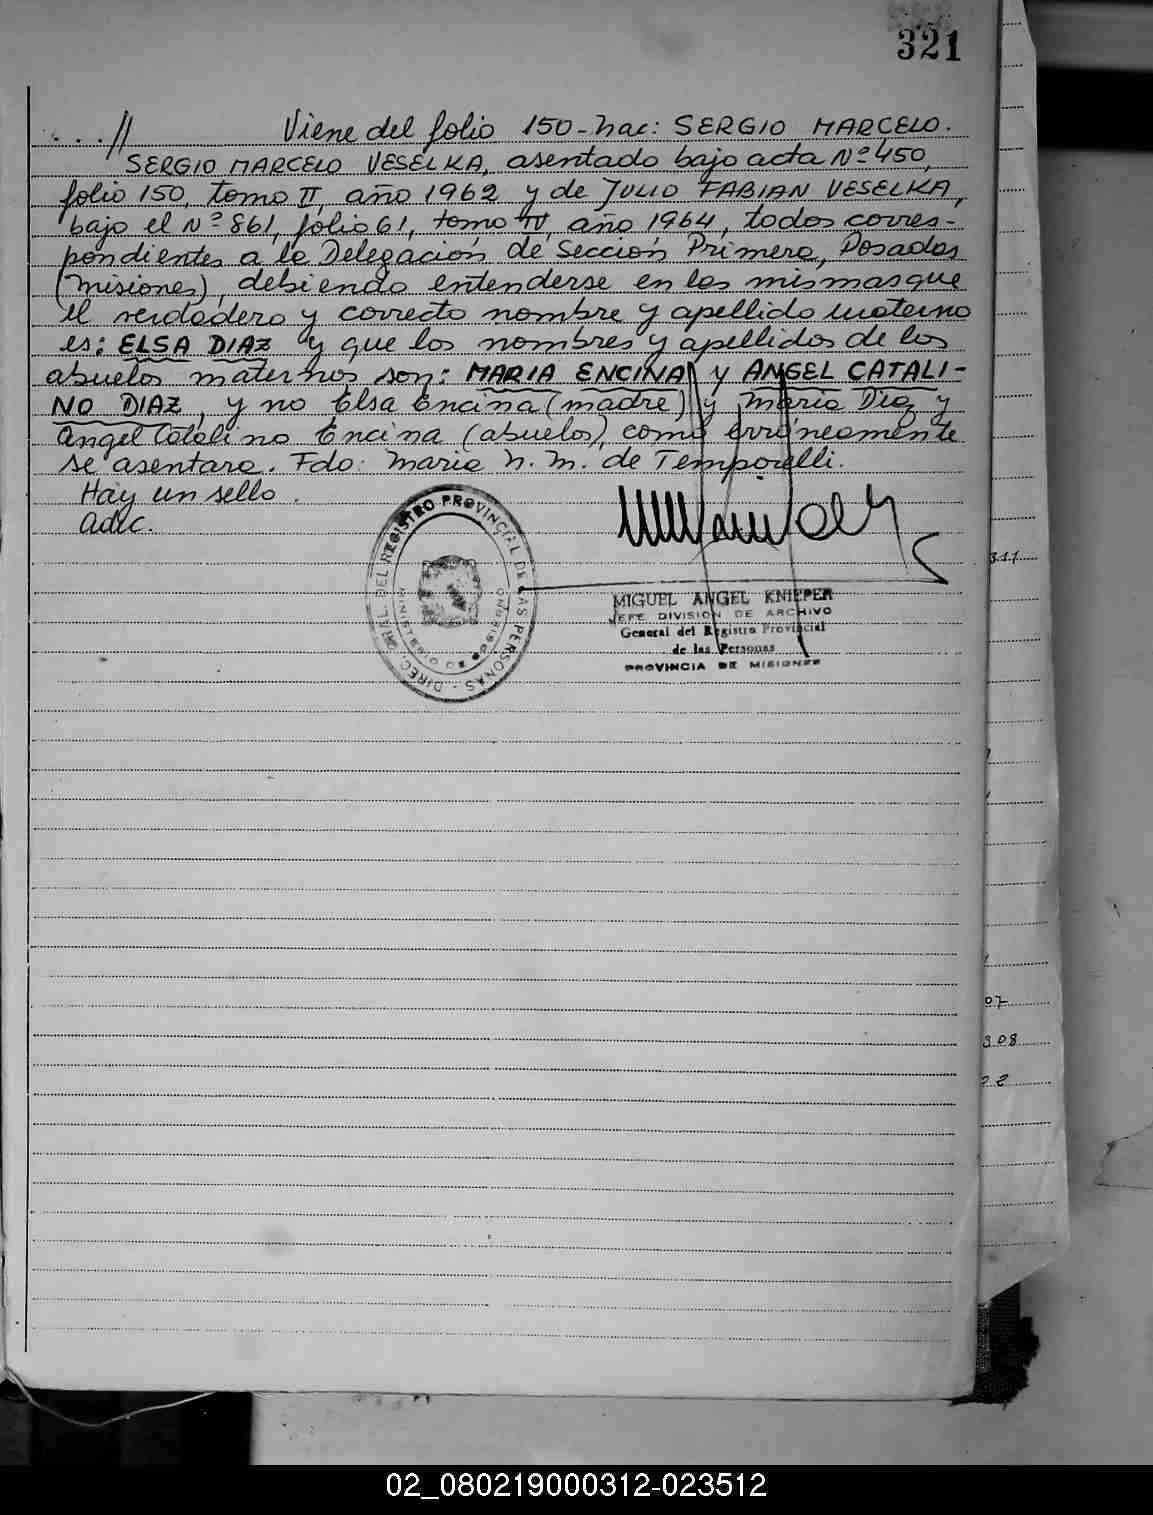 321
....// Viene del folio 150-nac: SERGIO MARCELO.
SERGIO MARCELO VESELKA, asentado bajo acta Nº 450,
folio 150, tomo II, año 1962 y de JULIO FABIAN VESELKA,
bajo el Nº 861, folio 61, tomo IV, año 1964, todos corres-
pondientes a la Delegación de Sección Primera, Posadas
(Misiones), debiendo entenderse en las mismas que
el verdadero y correcto nombre y apellido materno
es: ELSA DIAZ y que los nombres y apellidos de los
abuelos maternos son: MARIA ENCINA y ANGEL CATALI-
NO DIAZ, y no Elsa Encina (madre) y Maria Diaz y
Angel Catalino Encina (abuelos), como erróneamente
se asentara. Fdo: Maria N. M. de Temporelli.
Hay un sello.
adec.
DIREC. GRAL. DEL REGISTRO PROVINCIAL DE LAS PERSONAS
MINISTERIO DE GOBIERNO
MIGUEL ANGEL KNIEPER
JEFE DIVISION DE ARCHIVO
General del Registro Provincial
de las Personas
PROVINCIA DE MISIONES
311
07
308
02_080219000312-023512